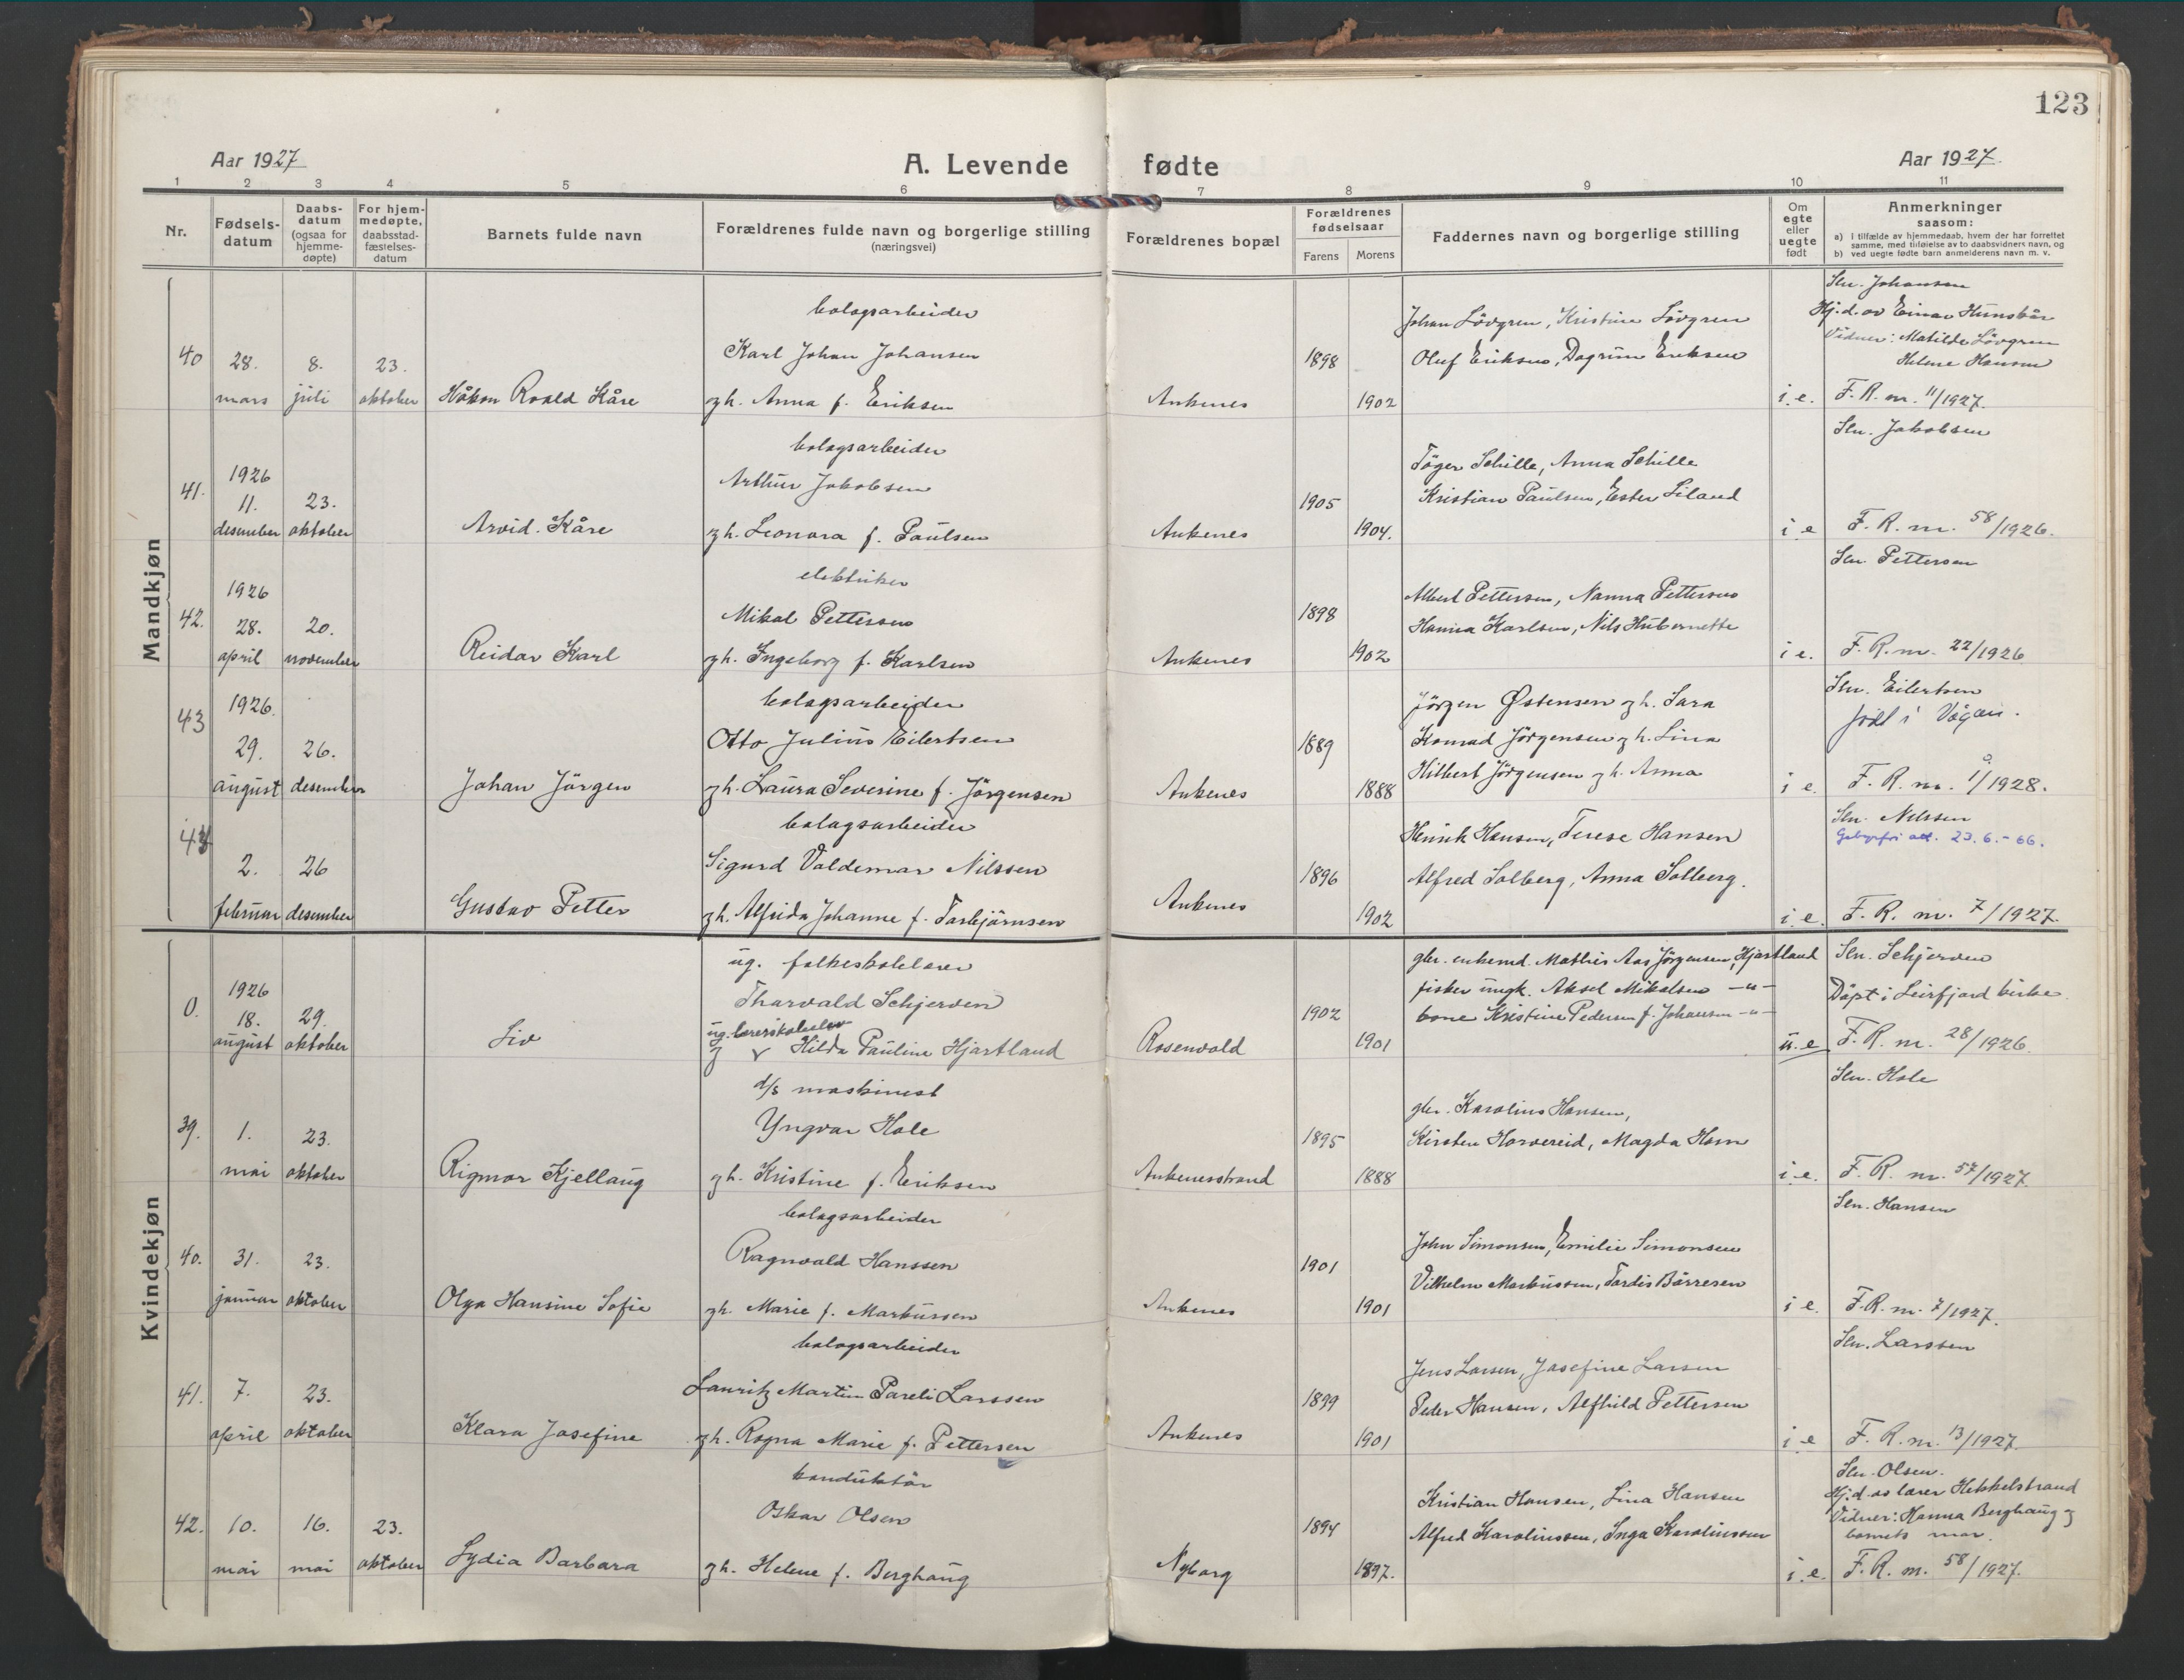 123
Aar 1927
A. Levende fødte
Aar 1927.
1 2 3 4 5 6 7 8 9 10 11
Nr.
Fødsels-
datum
Daabs-
datum
(ogsaa for
hjemme-
døpte)
For hjem-
medøpte,
daabsstad-
fæstelses-
datum
Barnets fulde navn
Forældrenes fulde navn og borgerlige stilling
(næringsvei)
Forældrenes bopæl
Forældrenes
fødselsaar
Farens Morens
Faddernes navn og borgerlige stilling
Om
egte
eller
uegte
født
Anmerkninger
saasom:
a) i tilfælde av hjemmedaab, hvem der har forrettet
samme, med tilføielse av to daabsvidners navn, og
b) ved uegte fødte barn anmelderens navn m. v.
Mandkjøn
40
28.
mars
8.
juli
23.
oktober
Håkon Roald Kåre
bolagsarbeider
Karl Johan Johansen
og h. Anna f. Eriksen
Ankenes
1898
1902
Johan Lövgren, Kristine Lövgren
Oluf Eriksen, Dagrun Eriksen
i. e.
Sln. Johansen
Hj. d. av Einar Hunsbår
Vidner: Matilde Lövgren
Helene Hansen
F. R. nr. 11/1927.
41.
1926
11.
desember
23.
oktober
Arvid Kåre
bolagsarbeider
Arthur Jakobsen
og h. Leonora f. Paulsen
Ankenes
1905
1904.
Töger Schille, Anna Schille
Kristian Paulsen, Ester Liland
i. e
Sln. Jakobsen
F. R. nr. 58/1926.
42.
1926
28.
april
20.
november
Reidar Karl
elektriker
Mikal Pettersen
og h. Ingeborg f. Karlsen
Ankenes
1898
1902
Albert Pettersen, Nanna Pettersen
Hanna Karlsen, Nils Hubernette
i e.
Sln. Pettersen
F. R. nr. 22/1926
43
1926.
29.
august
26.
desember
Johan Jörgen
bolagsarbeider
Otto Julius Eilertsen
og h. Laura Severine f. Jörgensen
Ankenes
1889
1888
Jörgen Østensen og h. Sara
Konrad Jörgensen og h. Lina
Hilbert Jörgensen og h. Anna
i e.
Sln. Eilertsen
født i Vågan.
F. R. nr. 1/1928.
2.
februar
26
desember
Gustav Petter
bolagsarbeider
Sigurd Valdemar Nilssen
og h. Alfrida Johanne f. Torbjörnsen
Ankenes
1896
1902
Henrik Hansen, Terese Hansen
Alfred Solberg, Anna Solberg.
i. e.
Sln. Nilssen
Gebyrfri att. 23. 6. - 66.
F. R. nr. 7/1927.
Kvindekjøn
0.
1926
18.
august
29.
oktober
Liv
ug. folkeskolelærer
Thorvald Schjerven
ug. lærerskoleelev
og Hilda Pauline Hjartland
Rosenvold
1902
1901
gbr. enkemd. Mathis Aas Jörgensen, Hjartland
fisker ungk. Aksel Mikalsen - " -
kone Kristine Pedersen f. Johansen - " -
u. e
Sln. Schjerven
Döpt i Leirfjord kirke
F. R. nr. 28/1926.
39.
1.
mai
23.
oktober
Rigmor Kjellaug
d/s maskinist
Yngvar Hole
og h. Kristine f. Eriksen
Ankenesstrand
1895
1888
gbr. Karolius Hansen,
Kirsten Horvereid, Magda Horn
i. e.
Sln. Hole
F. R. nr. 57/1927.
40.
31.
januar
23.
oktober
Olga Hansine Sofie
bolagsarbeider
Ragnvald Hanssen
og h. Marie f. Markussen
Ankenes
1901
1901
John Simonsen, Emilie Simonsen
Vilhelm Markussen, Tordis Börresen
i e.
Sln. Hansen
F. R. nr. 7/1927.
41.
7.
april
23.
oktober
Klara Josefine
bolagsarbeider
Lauritz Martin Pareli Larssen
og h. Ragna Marie f. Pettersen
Ankenes
1899
1901
Jens Larsen, Josefine Larsen
Peder Hansen, Alfhild Pettersen
i. e
Sln. Larssen
F. R. nr. 13/1927.
42.
10.
mai
16.
mai
23.
oktober
Lydia Barbara
konduktör
Oskar Olsen
og h. Helene f. Berghaug
Nyborg
1894
1897.
Kristian Hansen, Lina Hansen
Alfred Karolinssen, Inga Karolinssen
i. e.
Sln. Olsen.
Hj. d. av lærer Hekkelstrand
Vidner: Hanna Berghaug og
barnets mor.
F. R. nr. 58/1927.